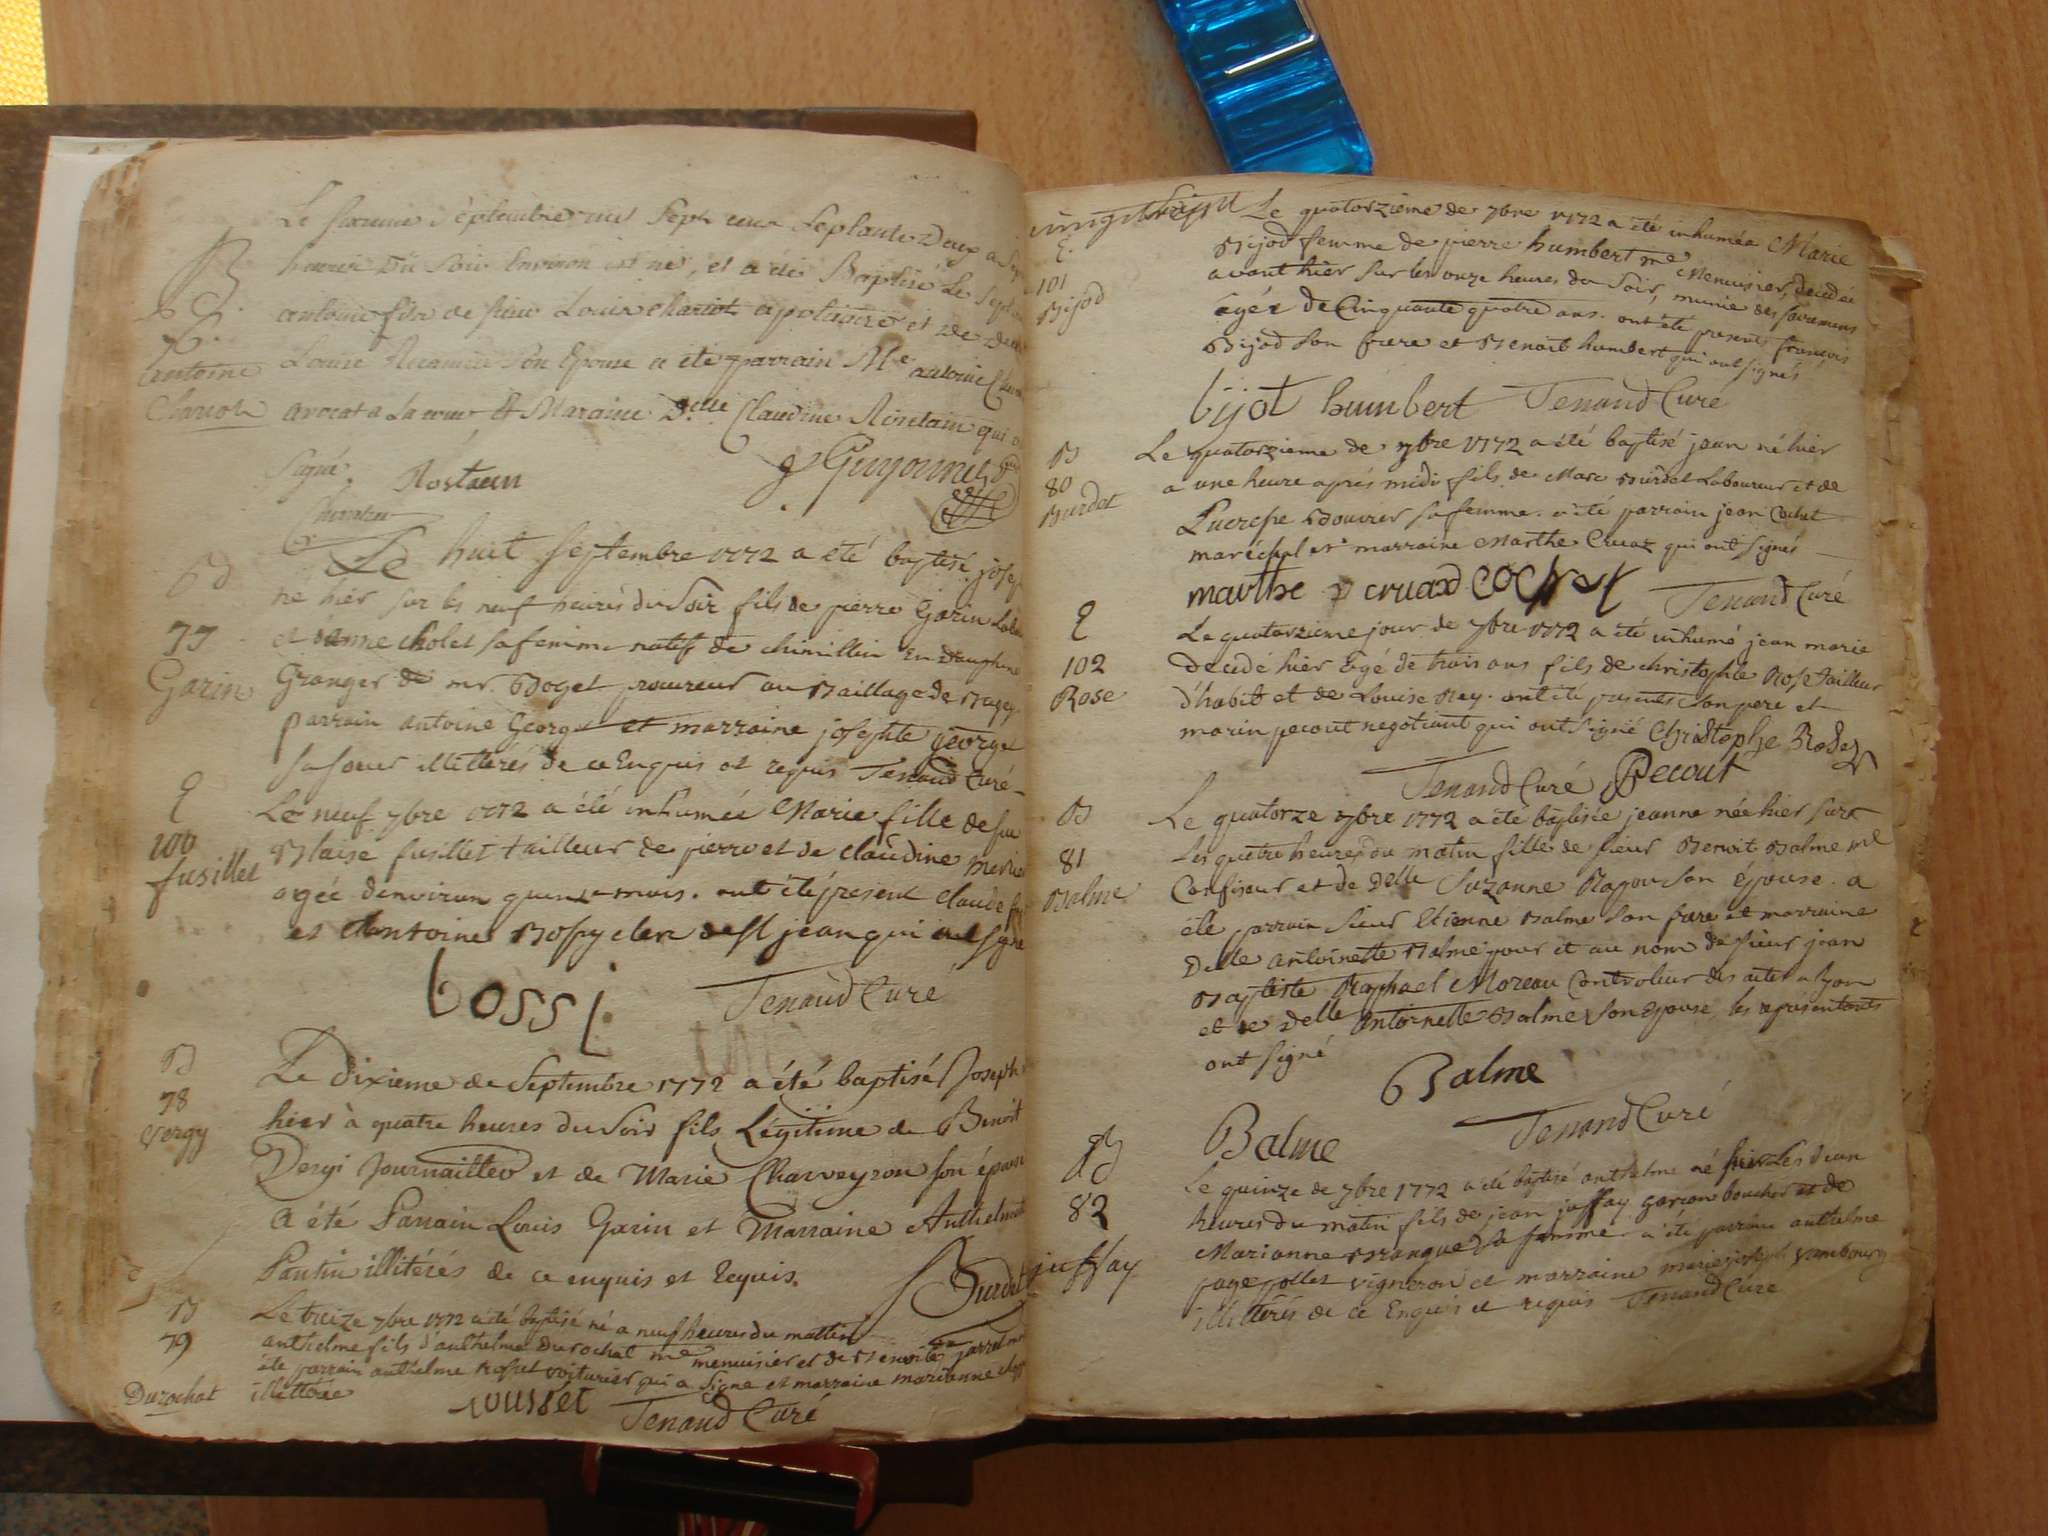 Le septembre mil sept cent septante Deux a sept
heures Du Soir Environ est né, et a été Baptisé Le
antoine fils de sieur Louis Chariot apoticaire et De
Louise son Epouse a été parrain Me antoine
avocat a La cour, Et Maraine Delle Claudine Rostain qui
signé. Rostain
B
Antoine
Chariot
Bd
77
Garin
Le huit Septembre 1772 a été baptisé josep
né hier sur les neuf heures du Soir fils de pierre Garin
et anne cholet sa femme natifs de chimillin En Dauphiné
Granger de mr. Boget procureur au Baillage de Bugey.
parrain antoine George et marraine josephte george
sa soeur illiterés de ce Enquis et requis Tenand Curé
100
fusillet
Le neuf 7bre 1772 a été inhumée Marie fille de feu
Blaise fusillet tailleur de pierre et de claudine
agée denviron quinze mois. ont été present claude
et Antoine Bossy clerc de St jean qui ont signé
bossi Tenand Curé
B
78
Vergy
Le dixieme de Septembre 1772 a été baptisé Joseph
hier à quatre heures du Soir fils Légitime de Benoit
Dergi Journaillier et de Marie Charveyron son épouse
a été Parrain Louis Garin et Marraine Anthelmette
Pantin illitérés de ce enquis et requis.
B
79
Durochat
Le treize 7bre 1772 a été baptisé né a neuf heures du mattin
anthelme fils d'anthelme Durochat me menuisier et de Benoite
été parrain anthelme Rosset voiturier qui a Signe et marraine marianne
illittérée
rousset Tenand Curé
101
Bijod
Le quatorzieme de 7bre 1772 a été inhumée Marie
Bijod femme de pierre humbert me Menuisier, decedée
avant hier sur les onze heures du Soir, munie des sacremens
agée de Cinquante quatre ans. ont été presents françois
Bijod son frere et Benoit humbert qui ont signés
bijot humbert Tenand Curé
B
80
Burdet
Le quatorzieme de 7bre 1772 a été baptisé jean né hier
a une heure aprés midi fils de Marc Burdet Laboureur et de
Lucresse Bouvier sa femme. a été parrain jean Cochet
maréchal et marraine Marthe Cruaz qui ont signés
marthe cruaxd cochet Tenand Curé
102
Rose
Le quatorzieme jour de 7bre 1772 a été inhumé jean marie
decedé hier agé de trois ans fils de christophle Rose tailleur
d'habit et de Louise Rey. ont été presents Son pere et
marin pecout negotiant qui ont signé Christophe Rose
Tenand Curé Pecout
B
81
Balme
Le quatorze 7bre 1772 a été baptisée jeanne née hier sur
Les quatre heures du matin fille de sieur Benoit Balme md
Confiseur et de Delle Suzanne Ragou Son épouse. a
été parrain sieur Etienne Balme son frere et marraine
Delle Antoinette Balme pour et au nom de sieur jean
Baptiste Raphael Moreau Controleur des actes a lyon
et de Delle Antoinette Balme son Epouse, les representants
ont signé
Balme
Balme Tenand Curé
Bd
82
juffay
Le quinze de 7bre 1772 a été baptisé anthelme né hier Les deux
heures du matin fils de jean juffay garcon boucher et de
Marianne Brangue sa femme a été parrain anthelme
pagepollet vigneron et marraine marie joseph Vambourg
illittérés de ce Enquis et requis Tenand Curé